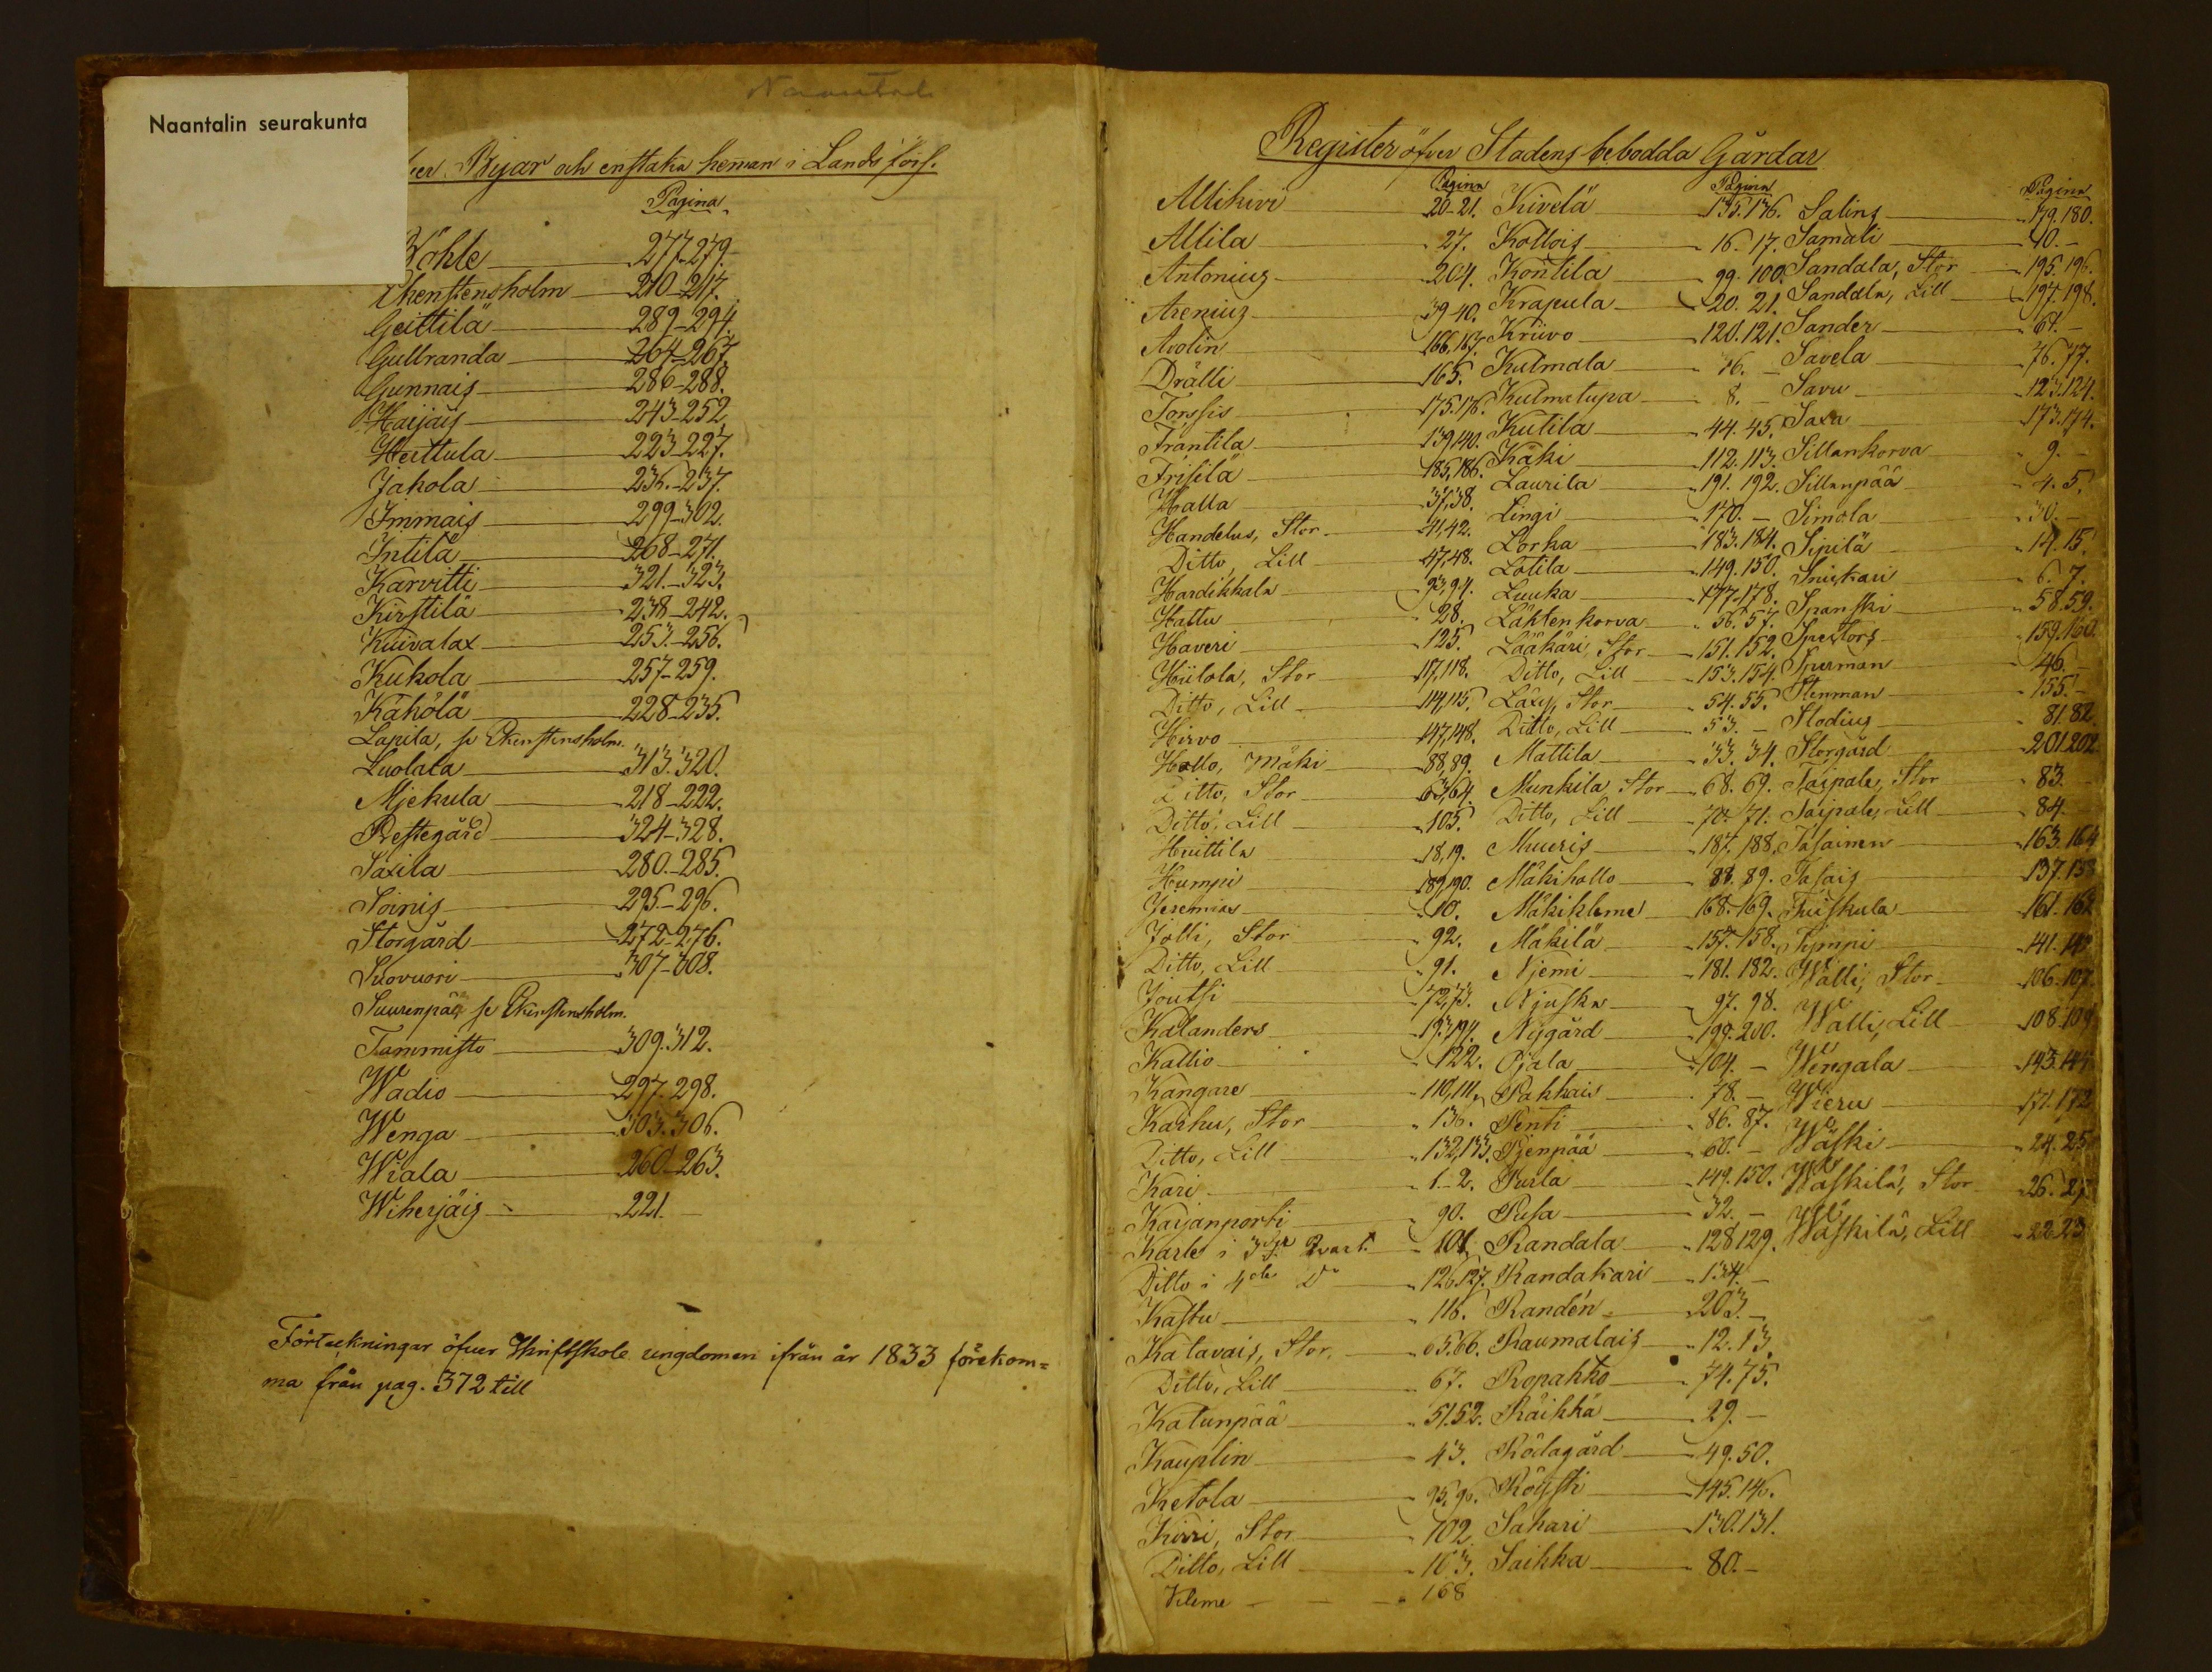 Naantali
Naantalin seurakunta
Byar och enstaka heman i Lands förs.
Pagina
Wöhle 277-279.
Ekenstensholm 210-217.
Geittilä 289-294.
Gullranda 264-267.
Gunnais 286-288.
Haijais 243-252.
Heittula 223-227.
Jakola 236.-237.
Immais 299-302.
Intilä 268-271.
Karvitti 321.-323.
Kirstilä 238-242.
Kuivalax 253.-256.
Kukola 257-259.
Kähölä 228-235.
Lapila, se Ekenstensholm.
Luolala 313.320.
Mjekula 218-222.
Prestegård 324-328.
Saxila 280.-285.
Soinis 295.-296.
Storgård 272-276.
Suovuori 307-308.
Suurenpää se Ekenstensholm.
Tammisto 309.312.
Wadio 297.298.
Wenga 303.306.
Wiala 260-263.
Wiherjäis 221.
Förteckningar öfver Skriftskole ungdomen ifrån år 1833 förekom=
ma från pag. 372 till
Register öfver Stadens bebodda Gårdar
Pagina
Allikivi 20-21.
Allila 27.
Antonius 204.
Arenius 39-40.
Avolin 166,167.
Drälli 165.
Forssis 175.176.
Frantila 139,140.
Frisilä 185,186.
Halla 37,38.
Handelus, Stor 41,42.
Ditto, Lill 47,48.
Hardikkala 93,94.
Hattu 28.
Haveri 125.
Hiilola, Stor 117,118.
Ditto, Lill 114,115.
Hirvo 147,148.
Hollo, Mäki 88,89.
Ditto, Stor 63,64.
Ditto, Lill 105.
Huittila 18,19.
Humpi 189,190.
Jeremias 10.
Jolli, Stor 92.
Ditto, Lill 91.
Joutsi 72,73.
Kalanders 193,194.
Kallio 122.
Kangare 110,111.
Karhu, Stor 136.
Ditto, Lill 132,133.
Kari 1-2.
Karjanportti 90.
Karls i 3dje Qvart. 101.
Ditto i 4de Do 126.127.
Kastu 116.
Katavais, Stor 65.66.
Ditto, Lill 67.
Katunpää 51.52.
Kauplin 43.
Ketola 95,96.
Kirri, Stor 102.
Ditto, Lill 103.
Kleme 168
Pagina
Kivelä 135.136.
Kollois 16-17.
Konttila 99.100.
Krapula 20.21.
Kriivo 120.121.
Kulmala 76.-
Kulmatupa 8.-
Kutila 44.45.
Käki 112.113.
Laurila 191.192.
Lingi 170.-
Lorka 183.184.
Lotila 149.150.
Luuka 177-178.
Läktenkorva 56.57.
Lääkäri, Stor 151.152.
Ditto, Lill 153.154.
Läxy, Stor 54.55.
Ditto, Lill 53.-
Mattila 33.34.
Munkila Stor 68.69.
Ditto, Lill 70.71.
Muuris 187.188.
Mäkihollo 88.89.
Mäkikleme 168.169.
Mäkilä 157.158.
Njemi 181.182.
Njuska 97.98.
Nygård 199.200.
Ojala 104.-
Pakkais 78.-
Pentti 86.87.
Pjenpää 60.-
Purla 149.150.
Pusa 32.-
Randala 128129.
Randakari 134.-
Randén 203.-
Raumalais 12.13.
Ropakko 74.75.
Räikkä 29.-
Rödagård 49.50.
Röysti 145.146.
Sakari 130.131.
Saikka 80.-
Pagina
Salins 179.180.
Samali 40.-
Sandala, Stor 195.196.
Sandala, Lill 197.198.
Sander 61.-
Savela 76.77.
Savu 123.124.
Saxa 173.174.
Sillankorva 9.-
Sillanpää 4.5.
Simola 30.-
Sipilä 14.15.
Sniskari 6.7.
Spanski 58.59.
Spectors 159.160.
Spurman 46.-
Stenman 155.-
Stodius 81.82.
Storgård 201.202.
Taipale, Stor 83.
Taipale, Lill 84.
Tasainen 163.164
Tasais 137.138
Tuiskula 161.162
Tympi 141.142
Wälli, Stor 106.107.
Wälli, Lill 108.109
Wengala 143.144
Wieru 171.172
Wäski 24.25
Wäskilä, Stor 26.27
Wäskilä, Lill 22.23